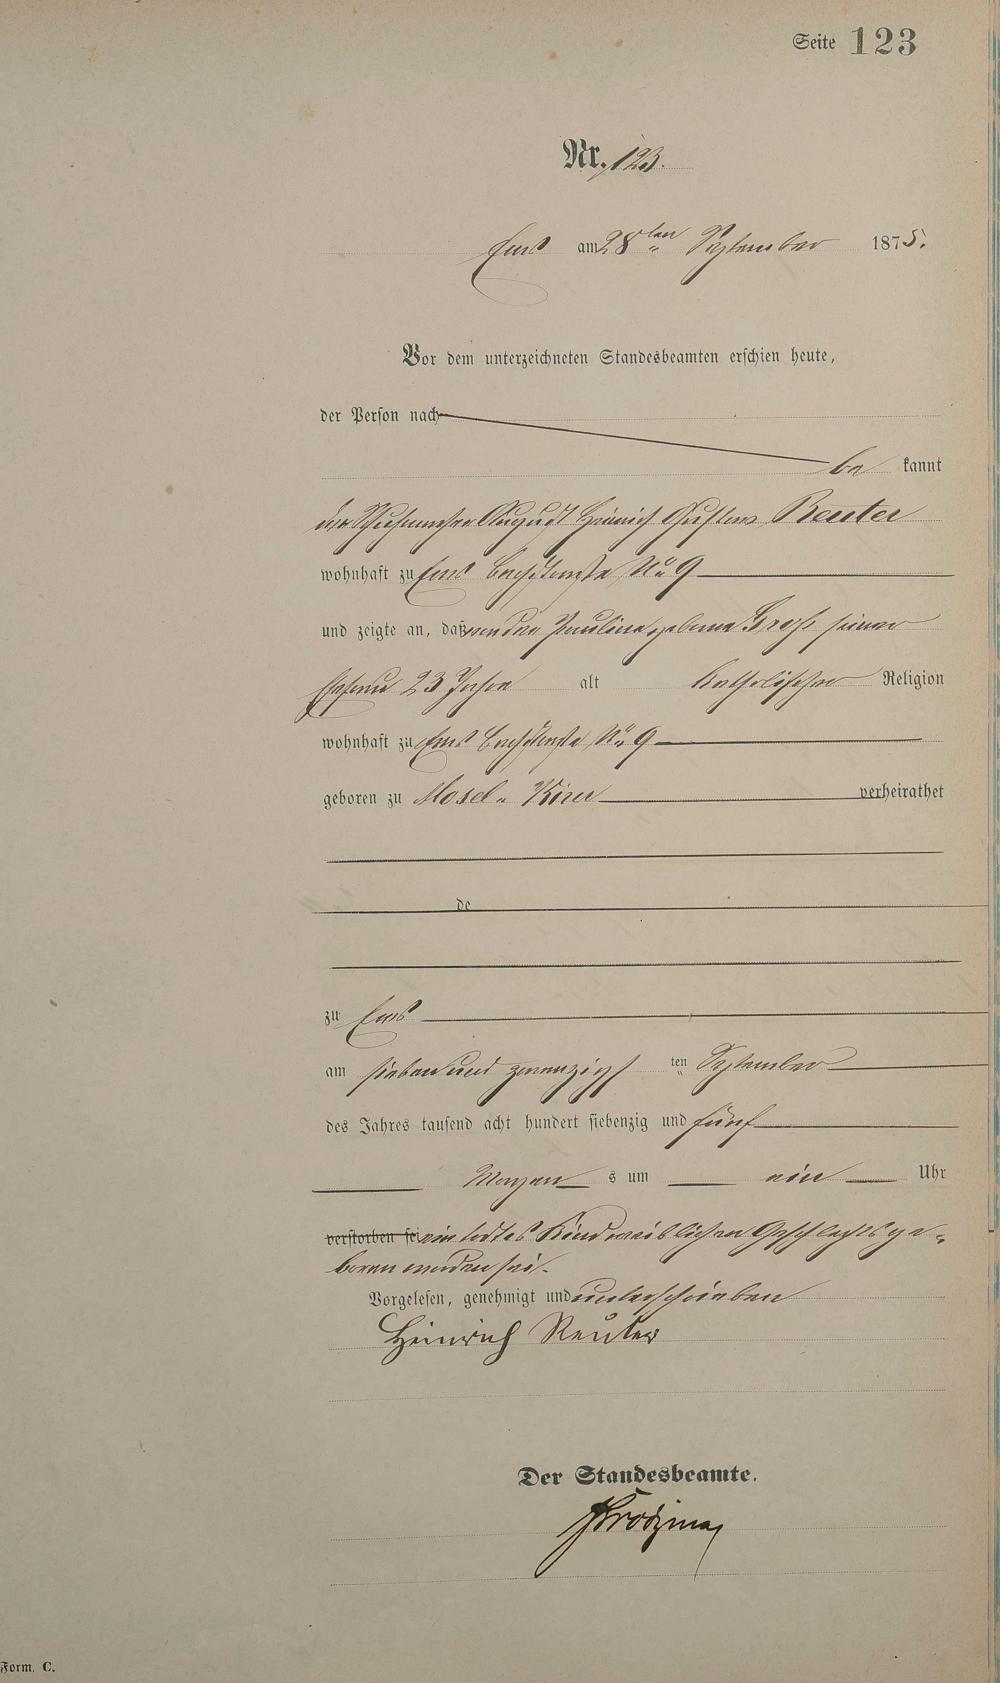 Seite 123
Nr. 123.
Ems am 28ten September 1875.
Vor dem unterzeichneten Standesbeamten erschien heute,
der Person nach
be kannt
der Schuhmacher August Heinrich Gustav Reuter
wohnhaft zu Ems Bachstraße No 9
und zeigte an, daß von der Pauline geborene Groß seiner
Ehefrau 23 Jahre alt katholischer Religion
wohnhaft zu Ems Bachstraße No 9
geboren zu Mosel- Kürn verheirathet
de
zu Ems
am sieben und zwanzigs ten September
des Jahres tausend acht hundert siebenzig und fünf
Morgen s um ein Uhr
verstorben sei ein todtes Kind weiblichen Geschlechts ge-
boren worden sei.
Vorgelesen, genehmigt und unterschrieben
Heinrich Reuter
Der Standesbeamte.
Form. C.